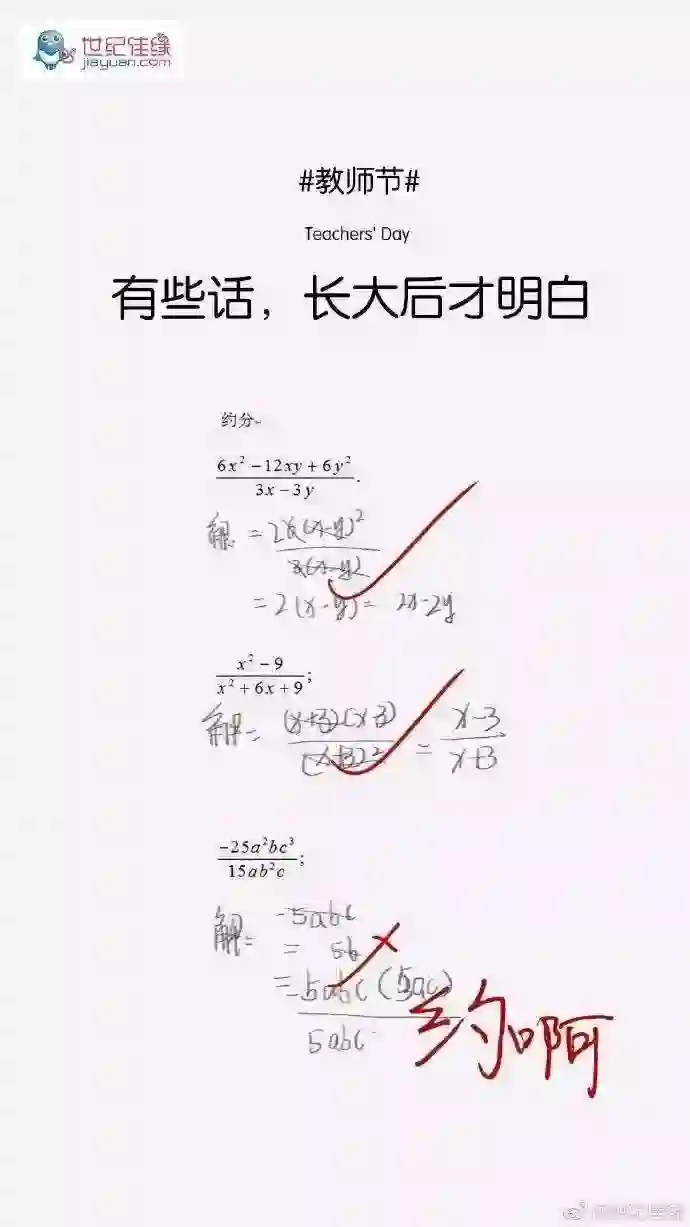 世纪佳缘
jiayuan.com
#教师节#
Teachers' Day
有些话，长大后才明白
约分
6x²-12xy+6y²
3x-3y
解 = 2×(x-y)²
3(x-y)
= 2(x-y) = 2x-2y
x²-9
x²+6x+9 ;
解 = (x+3)(x-3)
(x+3)²
= x-3
x+3
-25a²bc³
15ab²c ;
解 = -5abc
= 5b
= -5abc(5ac)
5abc
约啊